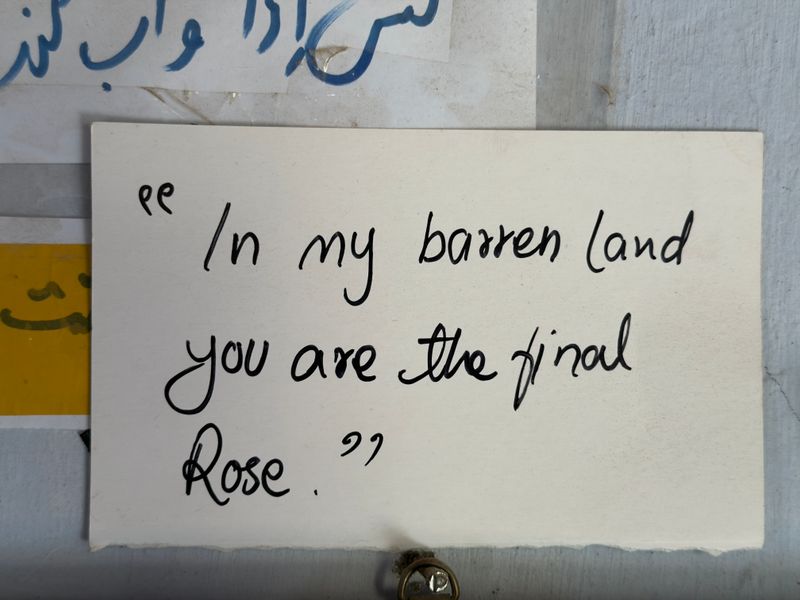 واب
“In my barren land
you are the final
Rose.”